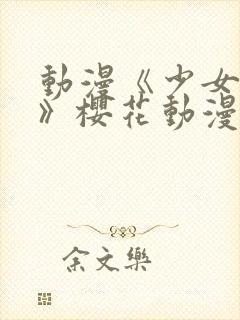 動漫《少女
》櫻花動漫
余文樂